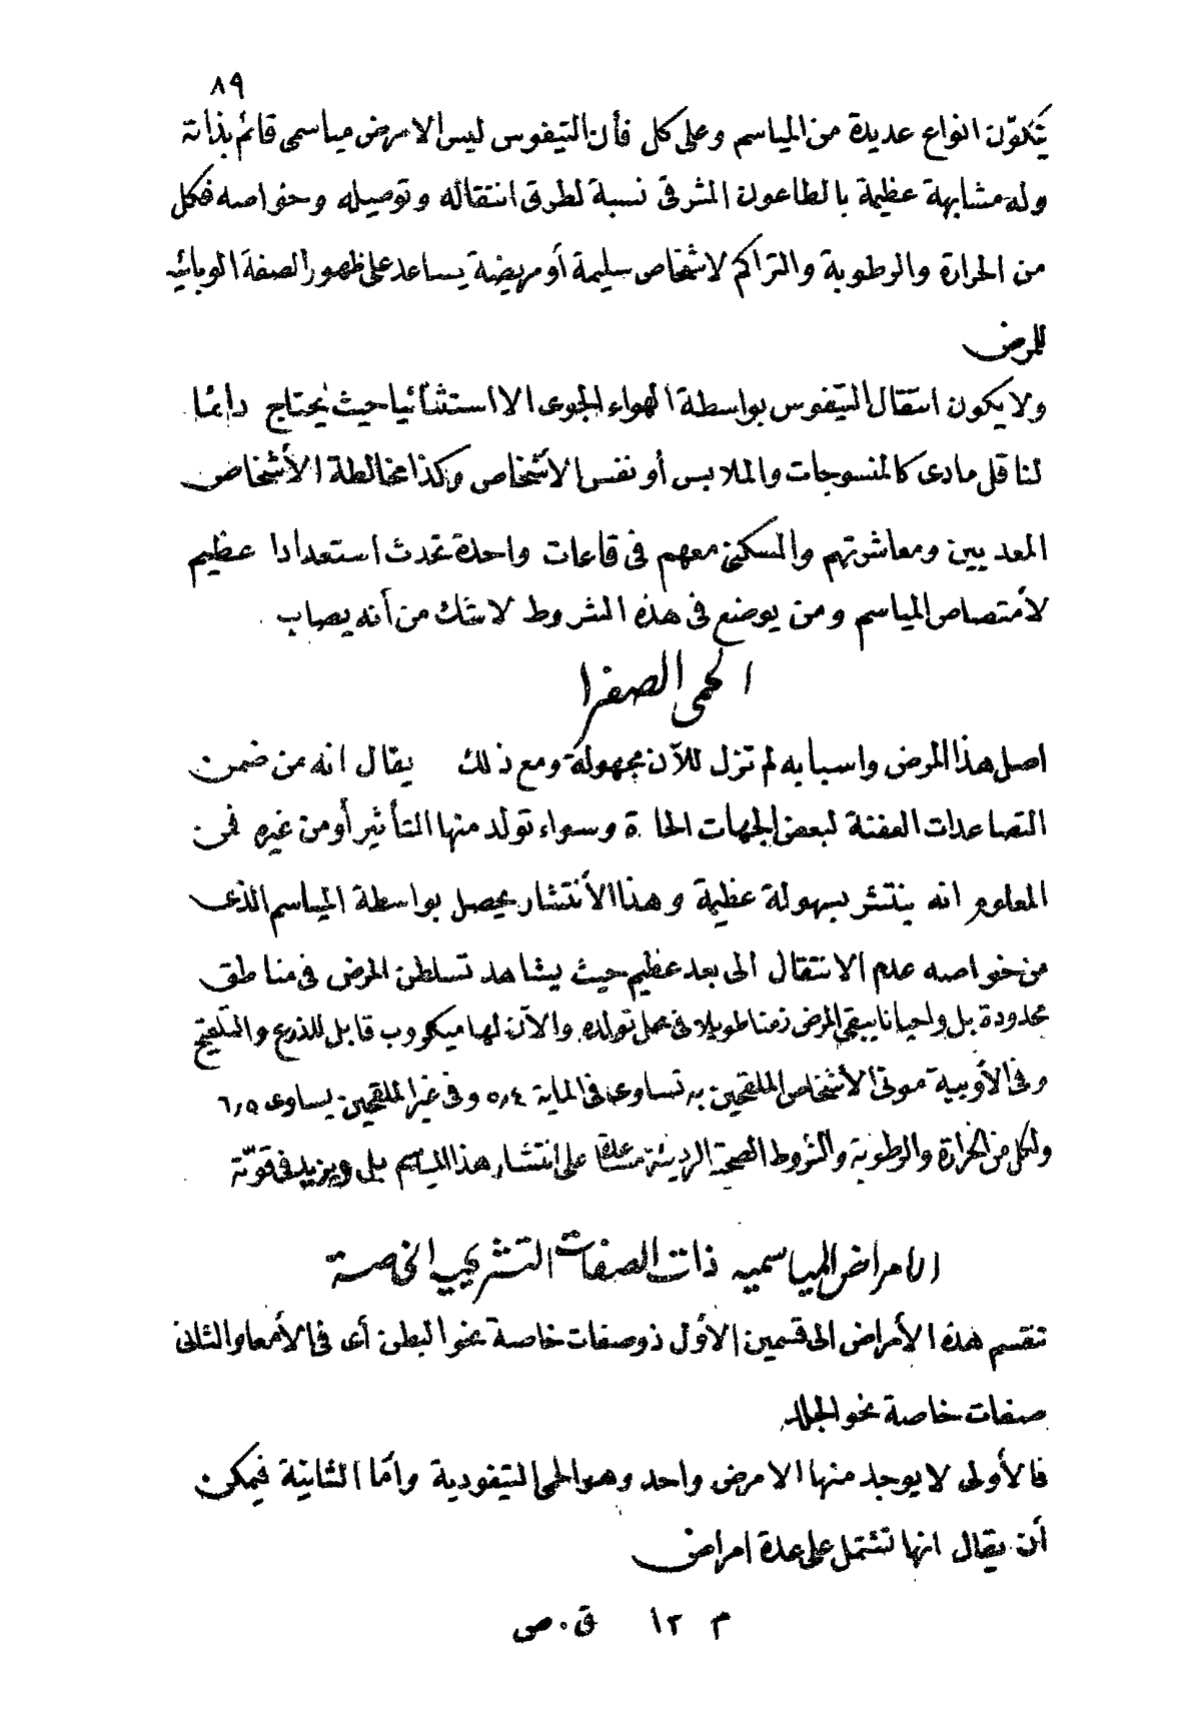 ٨٩
يتكوّن انواع عديدة من المياسم وعلى كل فأن التيفوس ليس الا مرض مياسمى قائم بذاته
وله مشابهة عظيمة بالطاعون المشرقى نسبة لطرق انتقاله وتوصيله وخواصه فكل
من الحرارة والرطوبة والتراكم لاشخاص سليمة أو مريضة يساعد على ظهور الصفة الوبائيه
للمرض
ولا يكون انتقال التيفوس بواسطة الهواء الجوى الا استثنائيا حيث يحتاج دائما
لناقل مادى كالمنسوجات والملابس أو نفس الأشخاص وكذا مخالطة الأشخاص
المعديين ومعاشرتهم والسكنى معهم فى قاعات واحدة تحدث استعدادا عظيم
لأمتصاص المياسم ومن يوضع فى هذه الشروط لاشك من أنه يصاب
الحمى الصفرا
اصل هذا المرض واسبابه لم تزل للآن مجهولة ومع ذلك يقال انه من ضمن
التصاعدات العفنة لبعض الجهات الحا ة وسواء تولد منها التأثير أو من غيره فمن
المعلوم انه ينتشر بسهولة عظيمة وهذا الأنتشار يحصل بواسطة المياسم الذى
من خواصه عدم الانتقال الى بعد عظيم حيث يشاهد تسلطن المرض فى مناطق
محدودة بل واحيانا يبقى المرض زمنا طويلا فى محل تولده والآن لها ميكروب قابل للذرع والتلقيح
وفى الأوبية موتى الأشخاص الملقحين به تساوى فى الماية ٥٫٤ وفى غير الملقحين يساوى ٦٫٥
ولكل من الحرارة والرطوبة والشروط الصحية الرديئة مساعدة على انتشار هذا المياسم بل ويزيد فى قوّته
الامراض المياسميه ذات الصفات التشريحيه الخاصة
تنقسم هذه الأمراض الى قسمين الأول ذو صفات خاصة نحو البطن أى فى الأمعا والثانى
صفات خاصة نحو الجلد
فالأولى لا يوجد منها الا مرض واحد وهو الحمى التيفودية وأما الثانية فيمكن
أن يقال انها تشتمل على عدة امراض
م ١٢ ق . ص